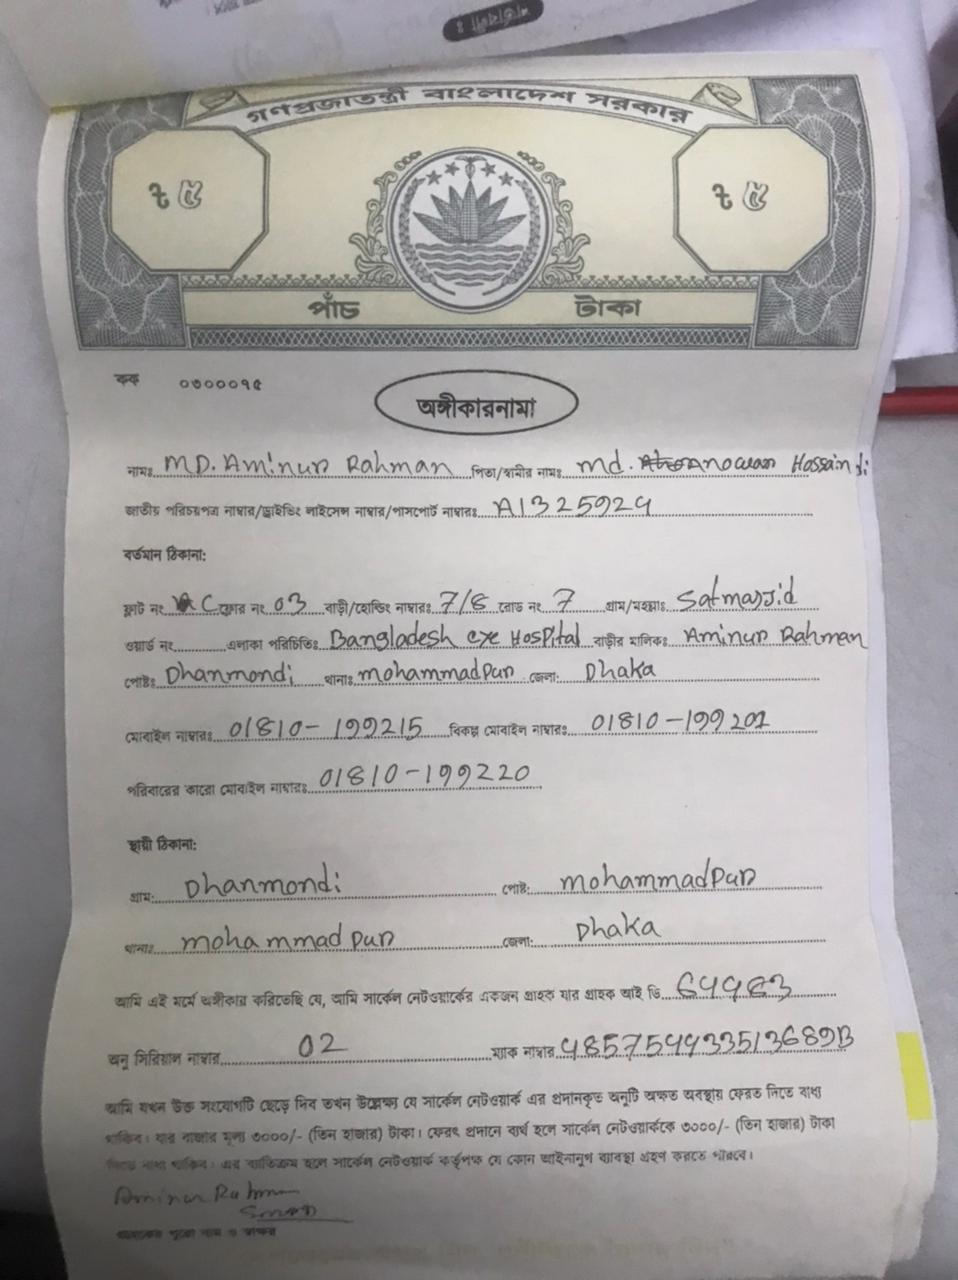 গণপ্রজাতন্ত্রী বাংলাদেশ সরকার
৳ ৫ ৳ ৫
পাঁচ টাকা
কক ০৩০০০৭৫
অঙ্গীকারনামা
নামঃ MD. Aminur Rahman পিতা/স্বামীর নামঃ md. Anowar Hossain
জাতীয় পরিচয়পত্র নাম্বার/ড্রাইভিং লাইসেন্স নাম্বার/পাসপোর্ট নাম্বারঃ A1325924
বর্তমান ঠিকানা:
ফ্লাট নং C ফ্লোর নং 03 বাড়ী/হোল্ডিং নাম্বারঃ 7/8 রোড নং 7 গ্রাম/মহল্লাঃ Satmasjid
ওয়ার্ড নং এলাকা পরিচিতিঃ Bangladesh eye Hospital বাড়ীর মালিকঃ Aminur Rahman
পোষ্টঃ Dhanmondi থানাঃ mohammadpur জেলা: Dhaka
মোবাইল নাম্বারঃ 01810-199215 বিকল্প মোবাইল নাম্বারঃ 01810-199201
পরিবারের কারো মোবাইল নাম্বারঃ 01810-199220
স্থায়ী ঠিকানা:
গ্রাম: Dhanmondi পোষ্ট: mohammadpur
থানাঃ mohammadpur জেলা: Dhaka
আমি এই মর্মে অঙ্গীকার করিতেছি যে, আমি সার্কেল নেটওয়ার্কের একজন গ্রাহক যার গ্রাহক আই ডি
অনু সিরিয়াল নাম্বার 02 ম্যাক নাম্বার 485754433513689B
আমি যখন উক্ত সংযোগটি ছেড়ে দিব তখন উল্লেক্ষ্য যে সার্কেল নেটওয়ার্ক এর প্রদানকৃত অনুটি অক্ষত অবস্থায় ফেরত দিতে বাধ্য
থাকিব। যার বাজার মূল্য ৩০০০/- (তিন হাজার) টাকা। ফেরৎ প্রদানে ব্যর্থ হলে সার্কেল নেটওয়ার্ককে ৩০০০/- (তিন হাজার) টাকা
দিতে বাধ্য থাকিব। এর ব্যতিক্রম হলে সার্কেল নেটওয়ার্ক কর্তৃপক্ষ যে কোন আইনানুগ ব্যবস্থা গ্রহণ করতে পারবে।
Aminur Rahman
গ্রাহকের পুরো নাম ও স্বাক্ষর